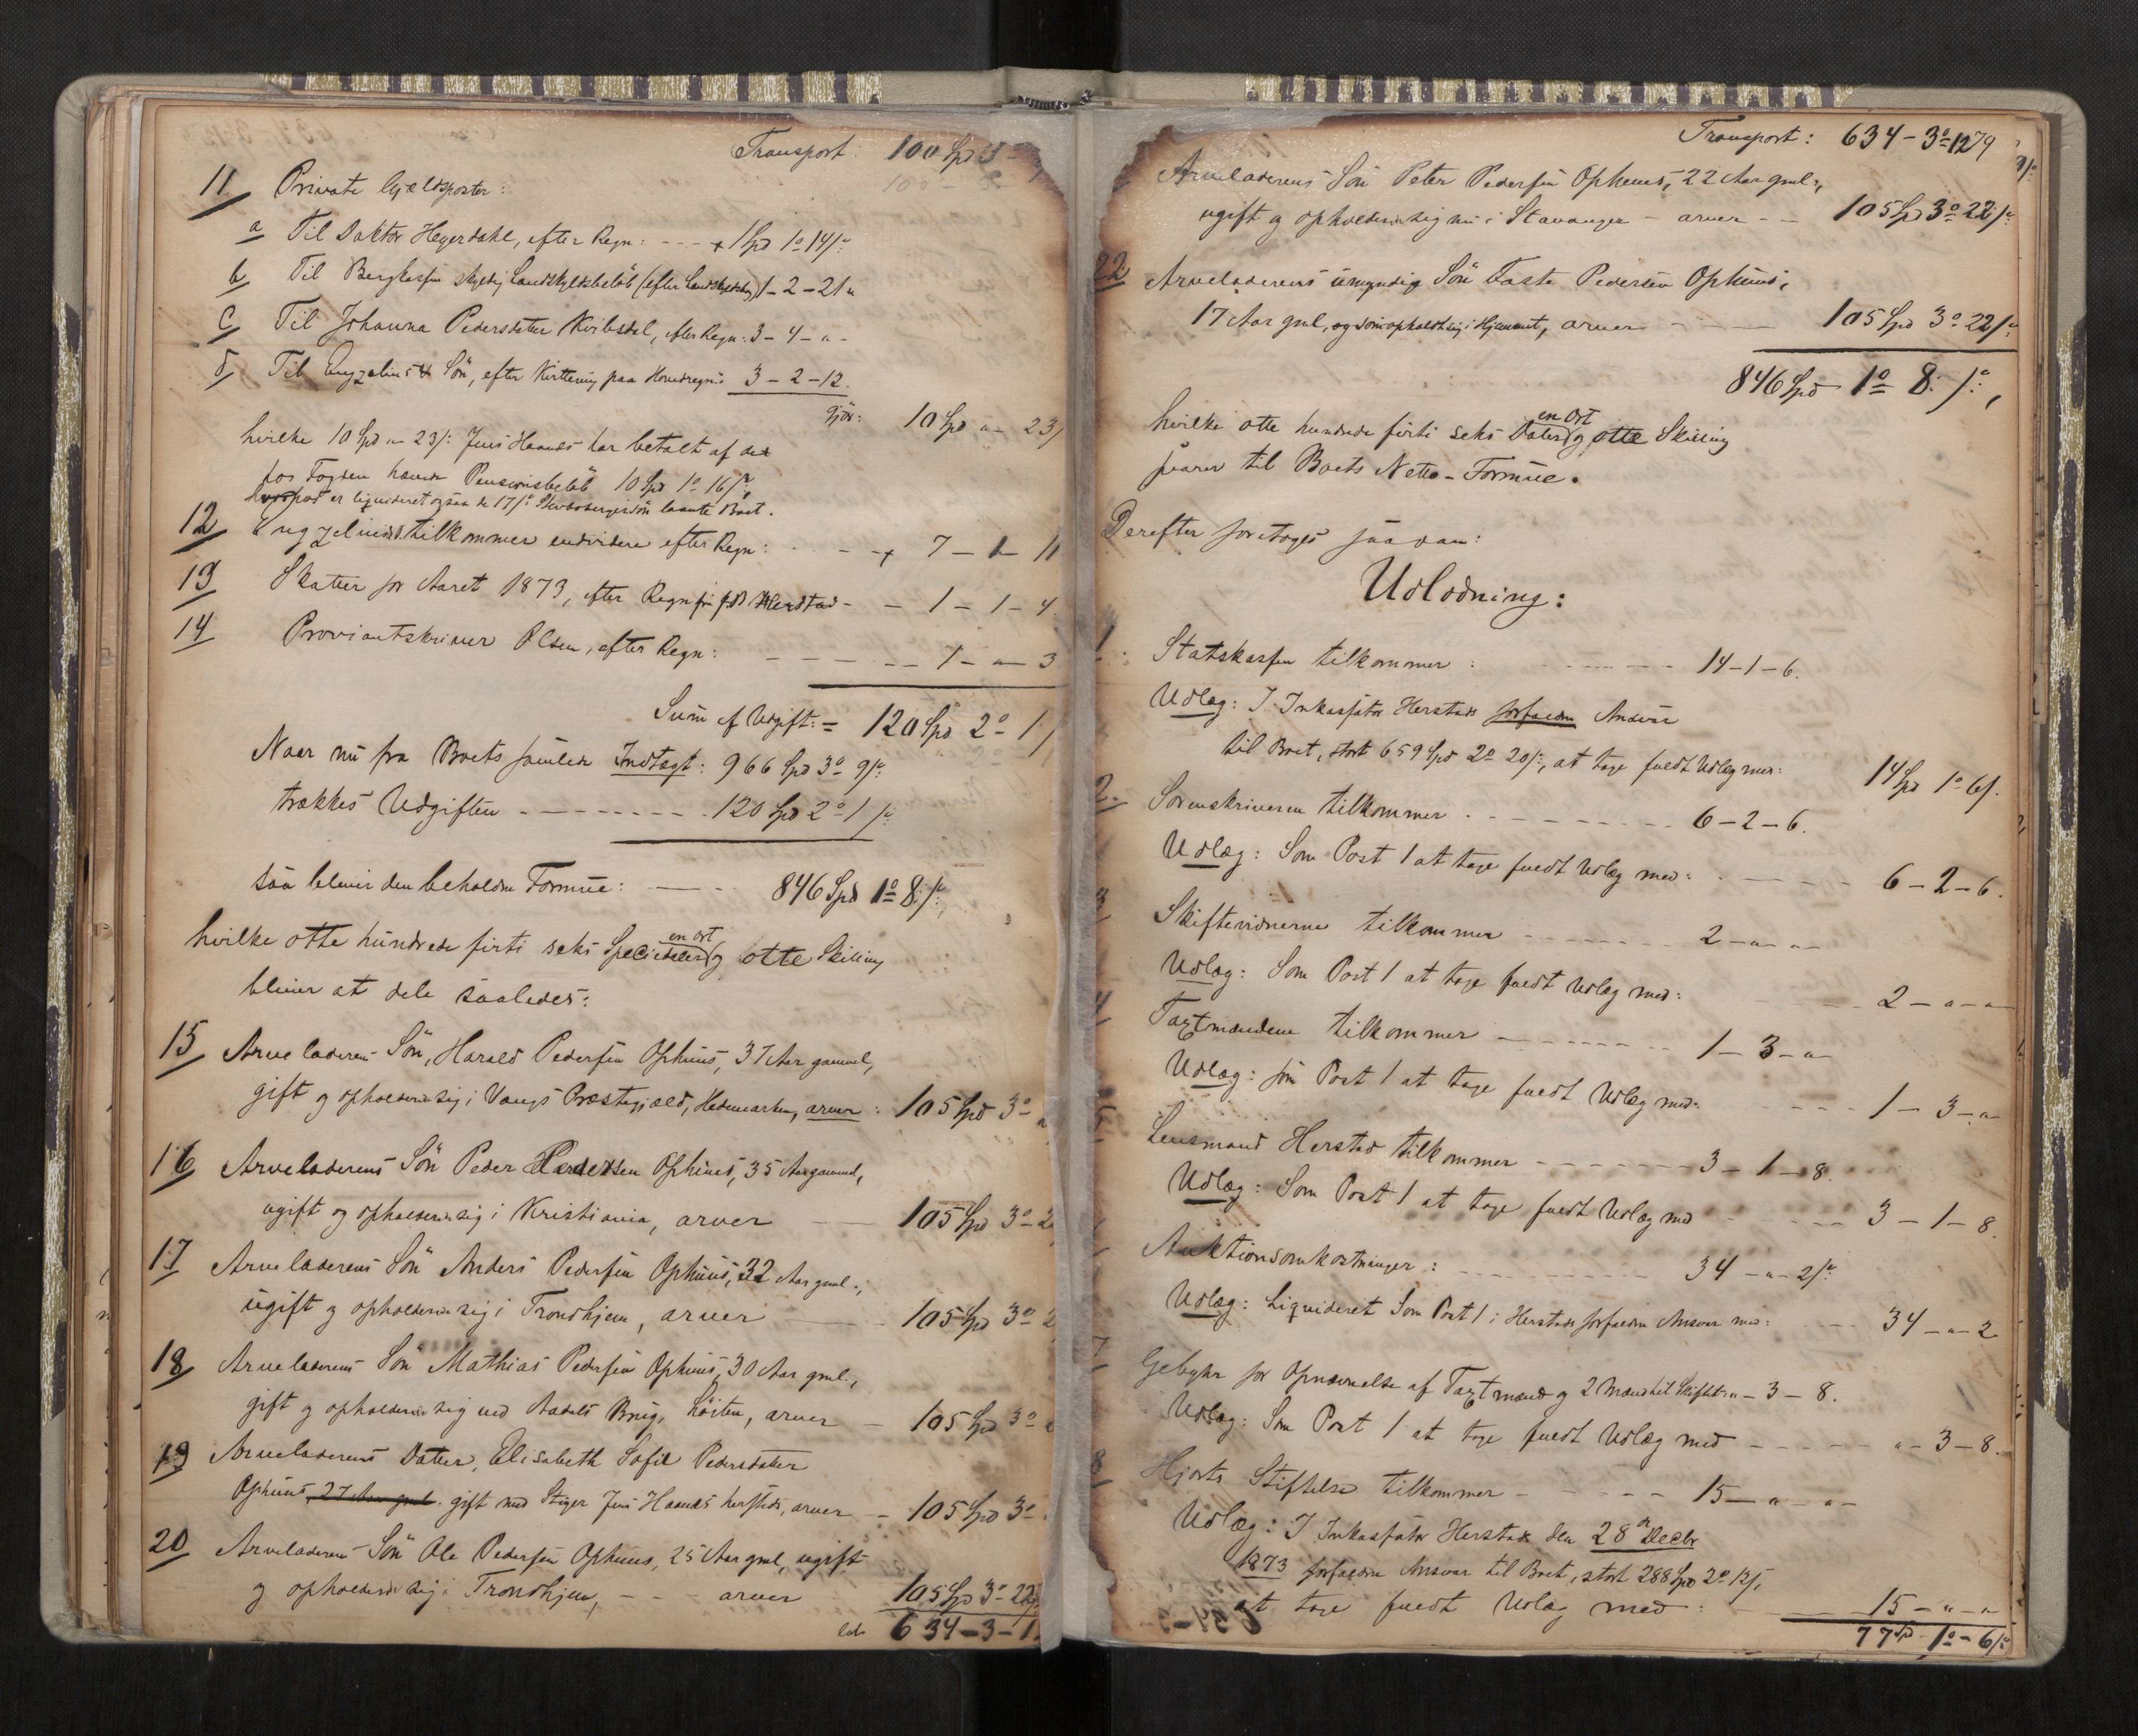 Transport: 100 Spd 3
11 Private Gjældsposter:
a Til Doktor Heyerdahl, efter Regn: 1 Spd 1o 14/:
b Til Bergkassen skyldig Landskyldsbeløb (efter ) 1 - 2 - 21
c Til Johanna Pedersdatter Kvibsdal, efter Regn: 3 - 4 - "
d Til Engzelius & Søn, efter Kvittering paa Hovedregn: 3 - 2 - 12.
gjør: 10 Spd " 23/
hvilke 10 Spd " 23/: Jens Haanes har betalt af det
hos Fogden hævede Pensionsbeløb 10 Spd 1o 16/:,
er liquideret ogsaa de 17/: laante Boet.
12 Engzelius tilkommer endvidere efter Regn: 7 - 1 - 11
13 Skatter for Aaret 1873, efter Regn fra Herstad - 1 - 1 - 4
14 Proviantskriver Olsen, efter Regn: 1 - " - 3
Sum af Udgift: = 120 Spd 2o 1/
Naar nu fra Boets samlede Indtægt: 966 Spd 3o 9/:
trækkes Udgiften 120 Spd 2o 1/:
saa bliver den beholdne Formue: 846 Spd 1o 8/:,
hvilke otte hundrede firti seks Speciedaler en Ort og otte Skilling
bliver at dele saaledes:
15 Arveladerens Søn, Harald Pedersen Ophuus, 37 Aar gammel,
gift og opholdende sig i Vangs Præstegjæld, Hedemarken, arver: 105 Spd 3o
16 Arveladerens Søn Peder Pedersen Ophuus, 35 Aar gammel,
ugift og opholdende sig i Kristiania, arver 105 Spd 3o 2
17 Arveladerens Søn Anders Pedersen Ophuus, 32 Aar gml.,
ugift og opholdende sig i Trondhjem, arver 105 Spd 3o 2
18 Arveladerens Søn Mathias Pedersen Ophuus, 30 Aar gml.,
gift og opholdende sig ved Aadals Brug, Løiten, arver 105 Spd 3o
19 Arveladerens Datter, Elisabeth Sofie Pedersdatter
Ophuus, 27 Aar gml. gift med Stiger Jens Haanes hersteds, arver - 105 Spd 3o
20 Arveladerens Søn Ole Pedersen Ophuus, 25 Aar gml, ugift
og opholdende sig i Trondhjem, - - arver 105 Spd 3o 22/
634 - 3 - 1
Transport: 634 - 3o 12 79
Arveladerens Søn Peter Pedersen Ophuus, 22 Aar gml.,
ugift og opholdende sig nu i Stavanger - arver - - 105 Spd 3o 22/:
22 Arveladerens umyndige Søn Faste Pedersen Ophuus,
17 Aar gml, og som opholdt sig i Hjemmet, arver 105 Spd 3o 22/:
846 Spd 1o 8/:,
hvilke otte hundrede firti seks Daler en Ort og otte Skilling
svarer til Boets Netto-Formue.
Derefter foretoges saadan:
Udlodning:
1. Statskassen tilkommer: 14 - 1 - 6.
Udlæg: I Inkassator Herstads forfaldne Ansvar
til Boet, stort 659 Spd 2o 20/:, at tage fuldt Udlæg med: 14 Spd 1o 6/.
2. Sorenskriveren tilkommer 6 - 2 - 6.
Udlæg: Som Post 1 at tage fuldt Udlæg med: 6 - 2 - 6.
3 Skiftevidnerne tilkommer 2 - " - "
Udlæg: Som Post 1 at tage fuldt Udlæg med: 2 - " - "
4 Taxtmændene tilkommer 1 - 3 - "
Udlæg: som Post 1 at tage fuldt Udlæg med: 1 - 3 - "
Lensmand Herstad tilkommer 3 - 1 - 8.
Udlæg: Som Post 1 at tage fuldt Udlæg med 3 - 1 - 8.
Auktionsomkostninger: 34 - " - 2/:
Udlæg: Liquideret Som Post 1 i Herstads forfaldne Ansvar med: 34 - " - 2
7 Gebyhr for Opnævnelse af Taxtmænd og 2 Mænd til Skiftet: " - 3 - 8.
Udlæg: Som Post 1 at tage fuldt Udlæg med " - 3 - 8.
8 Hjorts Stiftelse tilkommer 15 - " - "
Udlæg: I Inkassator Herstads den 28de Decbr
1873 forfaldne Ansvar til Boet, stort 288 Spd 2o 12/:,
at tage fuldt Udlæg med: 15 - " - "
77 Spd 1o - 6/: